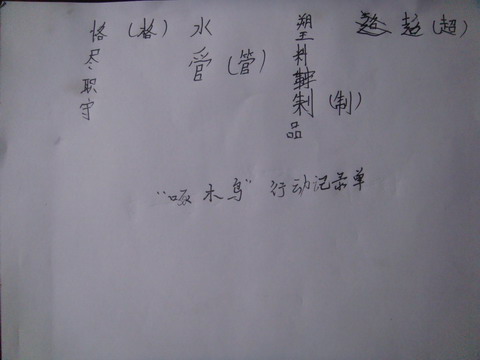 恪(格)尽职守
水菅(管)
塑料制(制)品
(超)
“啄木鸟”行动记录单